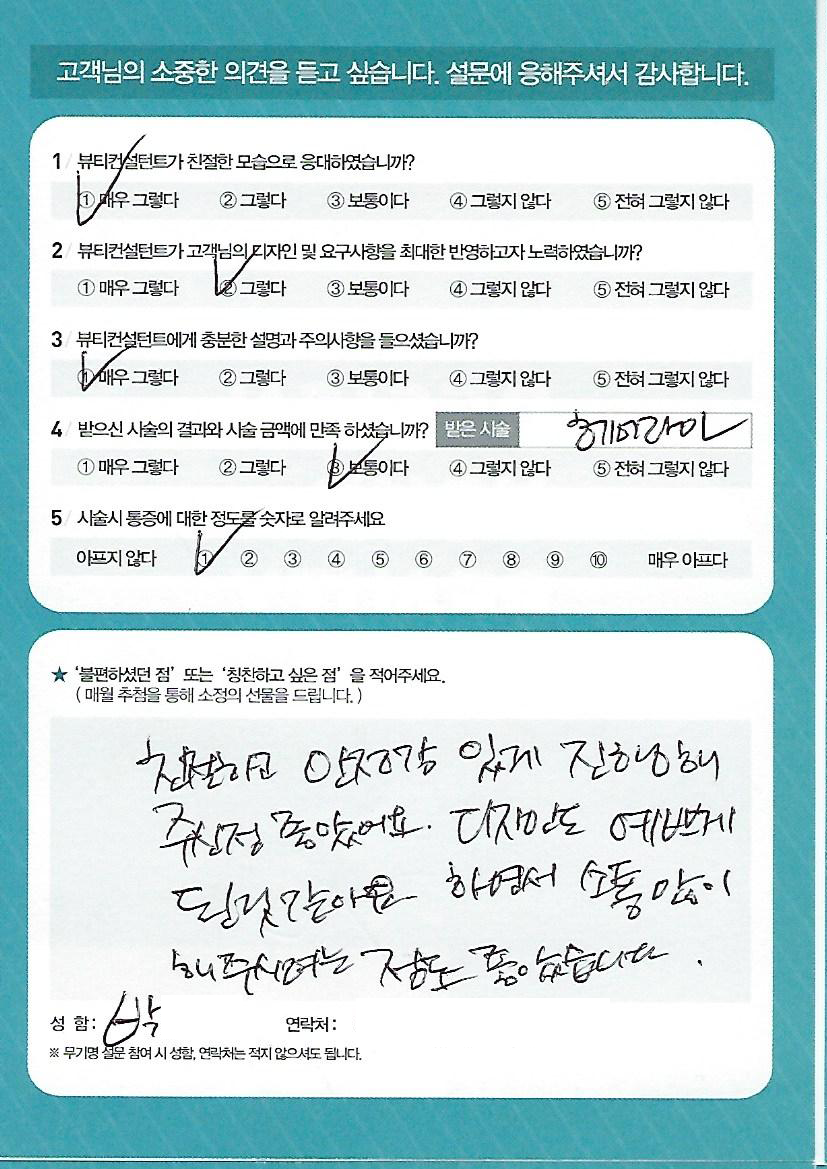 고객님의 소중한 의견을 듣고 싶습니다. 설문에 응해주셔서 감사합니다.
1 / 뷰티컨설턴트가 친절한 모습으로 응대하였습니까?
① 매우 그렇다 ② 그렇다 ③ 보통이다 ④ 그렇지 않다 ⑤ 전혀 그렇지 않다
2 / 뷰티컨설턴트가 고객님의 디자인 및 요구사항을 최대한 반영하고자 노력하였습니까?
① 매우 그렇다 ② 그렇다 ③ 보통이다 ④ 그렇지 않다 ⑤ 전혀 그렇지 않다
3 / 뷰티컨설턴트에게 충분한 설명과 주의사항을 들으셨습니까?
① 매우 그렇다 ② 그렇다 ③ 보통이다 ④ 그렇지 않다 ⑤ 전혀 그렇지 않다
4 / 받으신 시술의 결과와 시술 금액에 만족 하셨습니까? 받은 시술 헤어라인
① 매우 그렇다 ② 그렇다 ③ 보통이다 ④ 그렇지 않다 ⑤ 전혀 그렇지 않다
5 / 시술시 통증에 대한 정도를 숫자로 알려주세요
아프지 않다 ① ② ③ ④ ⑤ ⑥ ⑦ ⑧ ⑨ ⑩ 매우 아프다
★ '불편하셨던 점' 또는 '칭찬하고 싶은 점' 을 적어주세요.
( 매월 추첨을 통해 소정의 선물을 드립니다. )
친절하고 안정감 있게 진행해
주신점 좋았어요. 디자인도 예쁘게
된것같아요 하면서 소통 많이
해주시려는 점도 좋았습니다.
성 함 : 박 연락처 :
※ 무기명 설문 참여 시 성함, 연락처는 적지 않으셔도 됩니다.